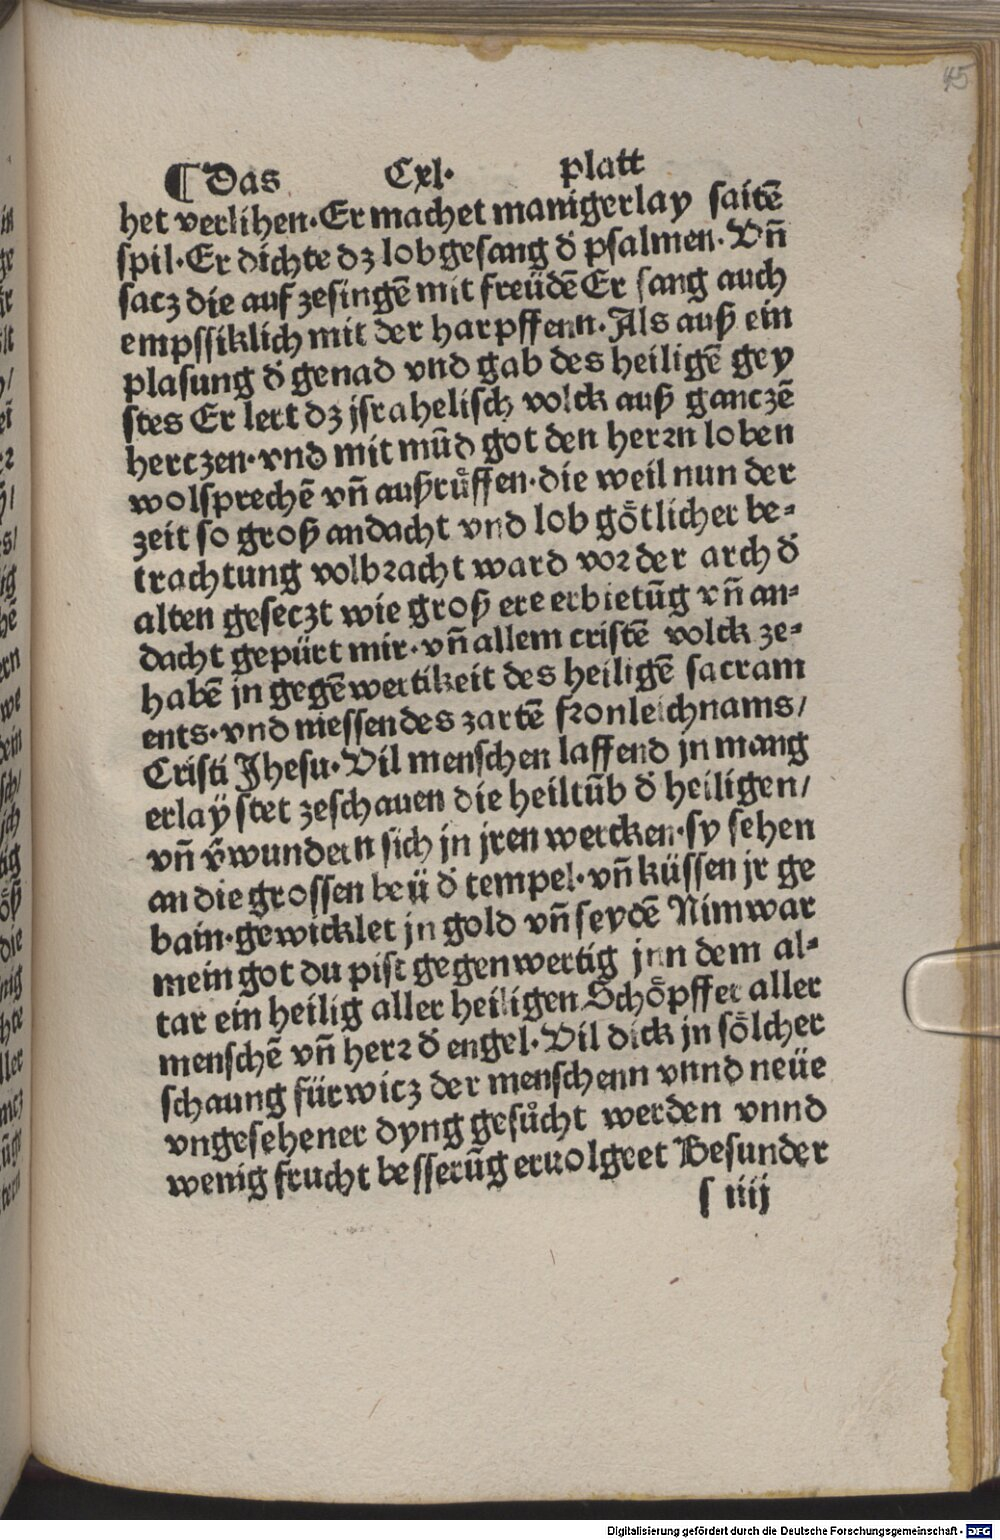 45
¶ Das Cxl. platt
het verlihen. Er machet manigerlay saitē
spil. Er dichte dz lobgesang d̄ psalmen. Vn̄
sacz die auf zesingē mit freüdē Er sang auch
empssiklich mit der harpffenn. Als auß ein
plasung d̄ genad vnd gab des heiligē gey
stes Er lert dz jsrahelisch volck auß ganczē
herczen. vnd mit mūd got den herꝛn loben
wolsprechē vn̄ außrůffen. die weil nun der
zeit so groß andacht vnd lob gȫtlicher be⸗
trachtung volbꝛacht ward voꝛ der arch d̄
alten geseczt wie groß ere erbietūg vn̄ an⸗
dacht gepürt mir. vn̄ allem cristē volck ze⸗
habē jn gegēwertikeit des heiligē sacram
ents. vnd niessen des zartē fꝛonleichnams/
Cristi Jhesu. Vil menschen laffend jn mang
erlaÿ stet zeschauen die heiltūb d̄ heiligen/
vn̄ v̄wundern sich jn jren wercken. sy sehen
an die grossen beü d̄ tempel. vn̄ küssen jr ge
bain. gewicklet jn gold vn̄ seydē Nim war
mein got du pist gegenwertig jnn dem al⸗
tar ein heilig aller heiligen Schȫpffer aller
menschē vn̄ herꝛ d̄ engel. Vil dick jn sȫlcher
schaung fürwicz der menschenn vnnd neüe
vngesehener dyng gesůcht werden vnnd
wenig frucht besserūg eruolgeet Besunder
s iiij
Digitalisierung gefördert durch die Deutsche Forschungsgemeinschaft - DFG